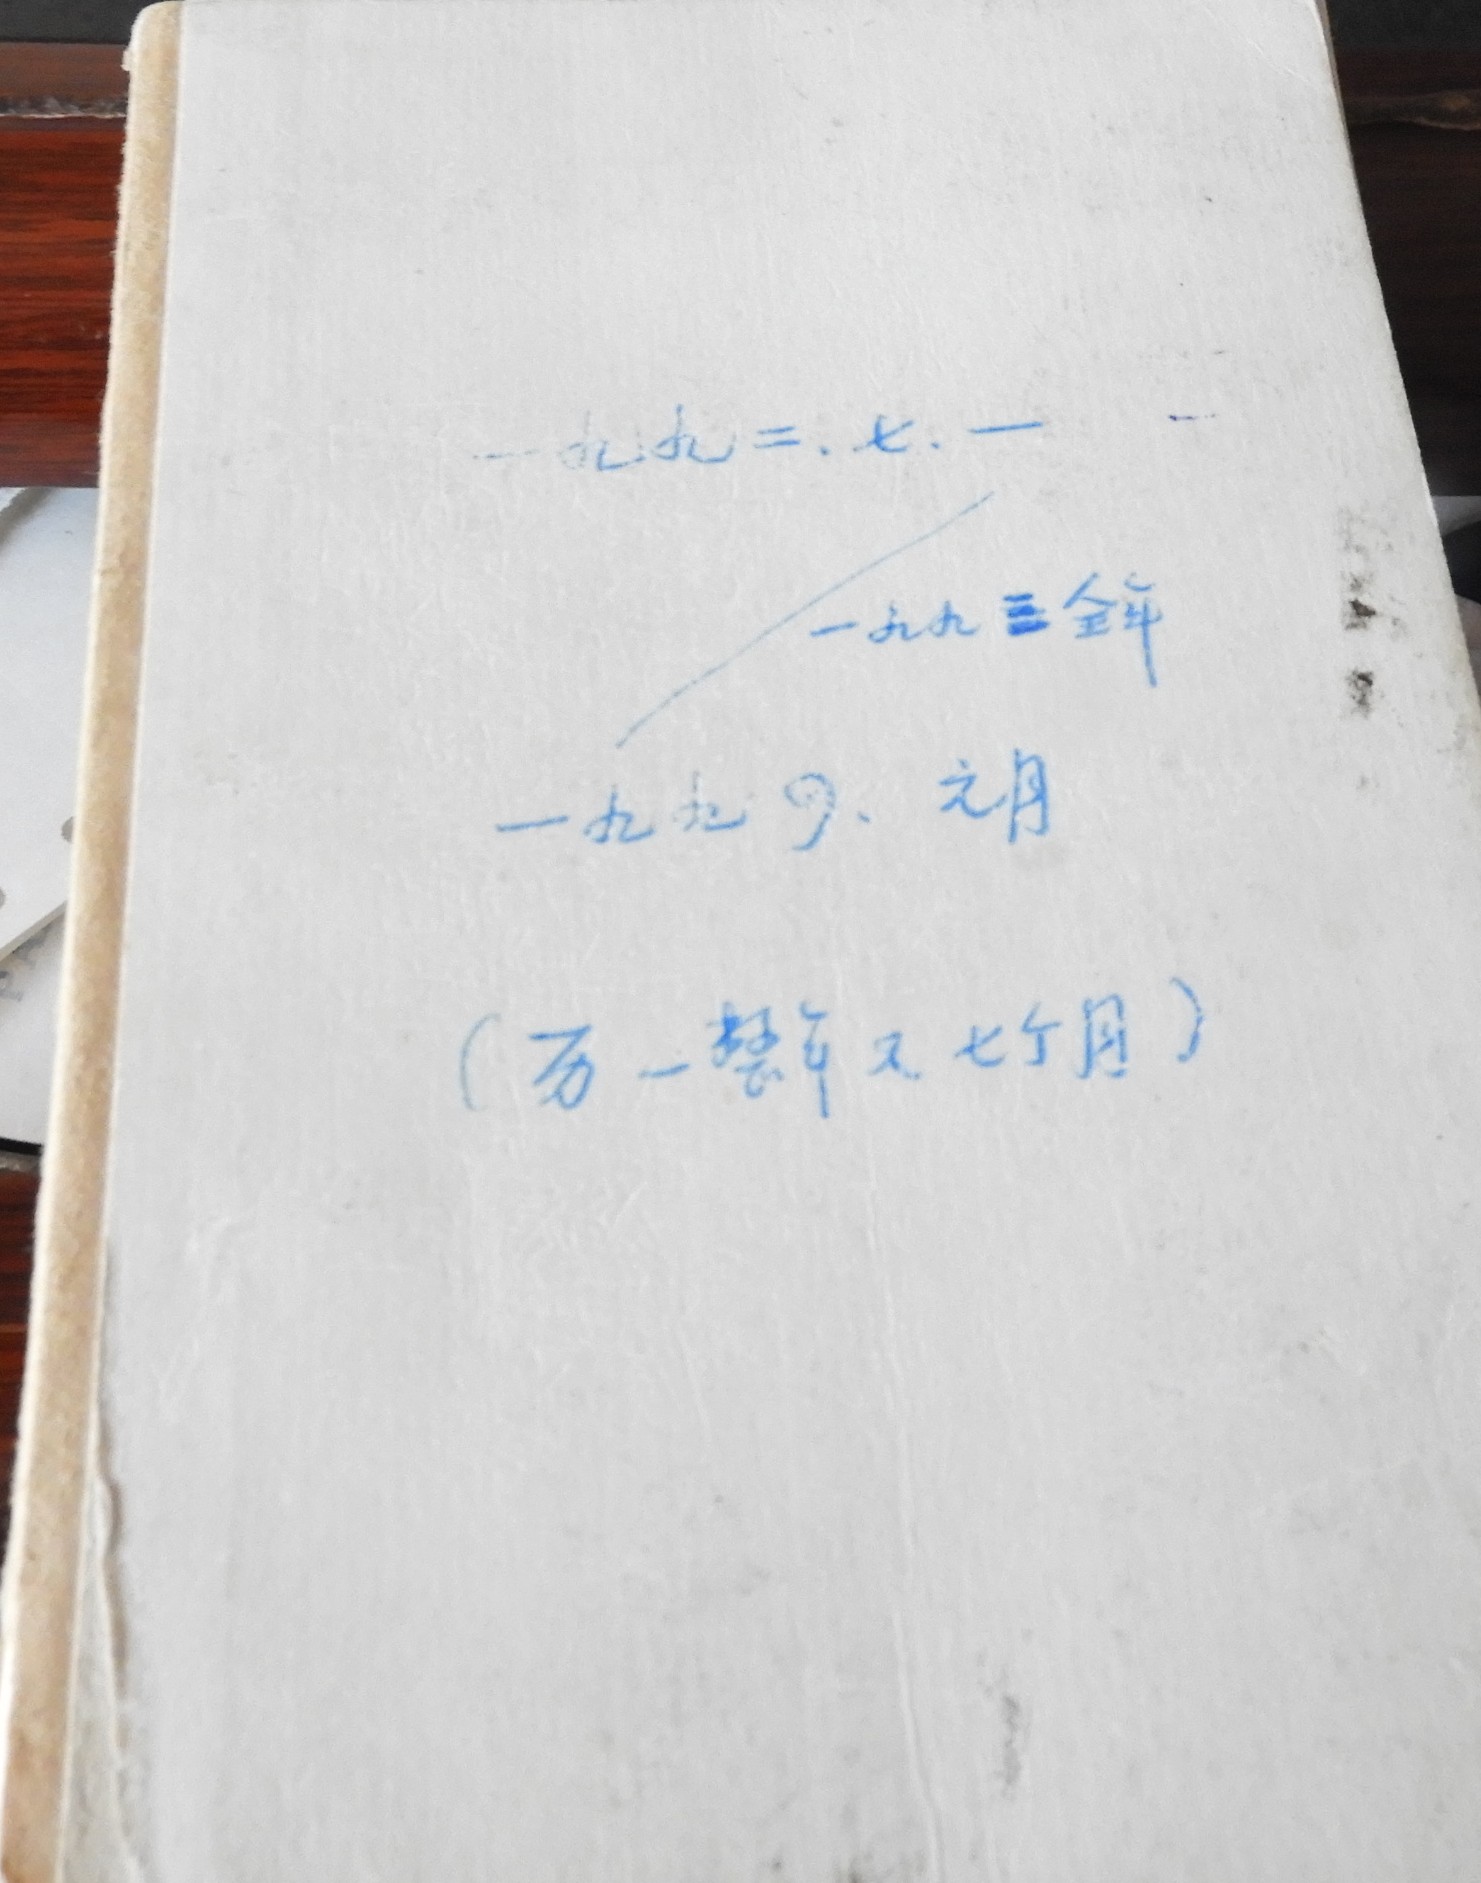 一九九二.七.一
一九九三全年
一九九四、元月
(历一整年又七个月)